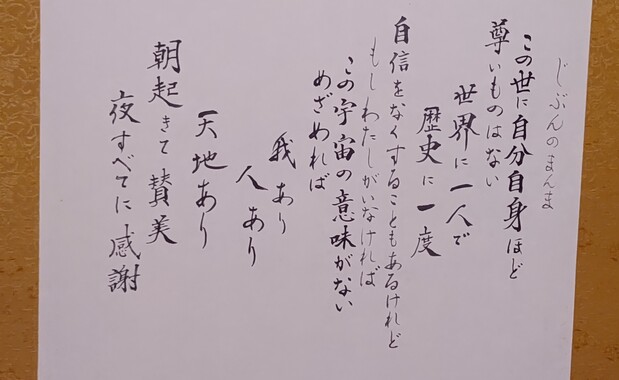 じぶんのまんま
この世に自分自身ほど
尊いものはない
世界に一人で
歴史に一度
自信をなくすることもあるけれど
もしわたしがいなければ
この宇宙の意味がない
めざめれば
我あり
人あり
天地あり
朝起きて賛美
夜すべてに感謝